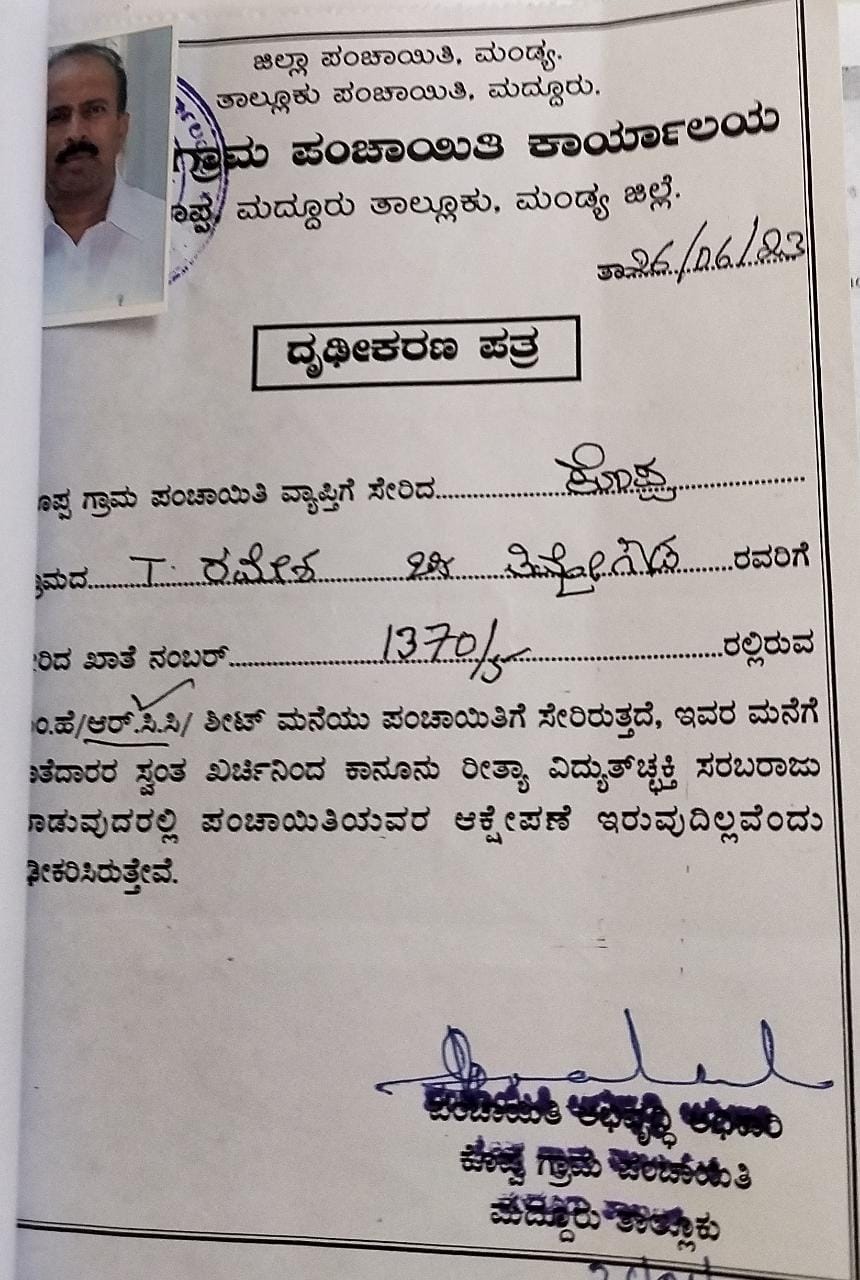 ಜಿಲ್ಲಾ ಪಂಚಾಯಿತಿ, ಮಂಡ್ಯ.
ತಾಲ್ಲೂಕು ಪಂಚಾಯಿತಿ, ಮದ್ದೂರು.
ಗ್ರಾಮ ಪಂಚಾಯಿತಿ ಕಾರ್ಯಾಲಯ
ಮದ್ದೂರು ತಾಲ್ಲೂಕು, ಮಂಡ್ಯ ಜಿಲ್ಲೆ.
ತಾ 26/06/23
ದೃಢೀಕರಣ ಪತ್ರ
ಗ್ರಾಮ ಪಂಚಾಯಿತಿ ವ್ಯಾಪ್ತಿಗೆ ಸೇರಿದ ಕೊಪ್ಪ
T. ರಮೇಶ ಬಿನ್ ರವರಿಗೆ
ಖಾತೆ ನಂಬರ್ 1370/5 ರಲ್ಲಿರುವ
ಆರ್.ಸಿ.ಸಿ/ ಶೀಟ್ ಮನೆಯು ಪಂಚಾಯಿತಿಗೆ ಸೇರಿರುತ್ತದೆ, ಇವರ ಮನೆಗೆ
ಸ್ವಂತ ಖರ್ಚಿನಿಂದ ಕಾನೂನು ರೀತ್ಯಾ ವಿದ್ಯುತ್‌ಚ್ಛಕ್ತಿ ಸರಬರಾಜು
ಪಂಚಾಯಿತಿಯವರ ಆಕ್ಷೇಪಣೆ ಇರುವುದಿಲ್ಲವೆಂದು
ಪಂಚಾಯಿತಿ ಅಭಿವೃದ್ಧಿ ಅಧಿಕಾರಿ
ಕೊಪ್ಪ ಗ್ರಾಮ ಪಂಚಾಯಿತಿ
ಮದ್ದೂರು ತಾಲ್ಲೂಕು